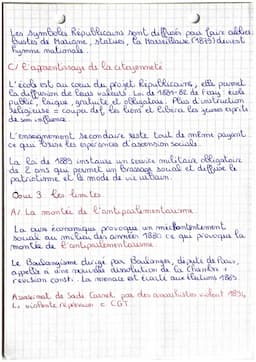 Les symboles Républicains sont diffusés pour faire adhérer
Bustes de Marianne, statues, la Marseillaise (1879) devient
hymne nationale.
C/ L'apprentissage de la citoyenneté
L'école est au cœur du projet Républicains, elle permet
la diffusion de leurs valeurs. Loi de 1881-82 de Ferry : école
public, laïque, gratuite et obligatoire. Plus d'instruction
religieuse = couper def les liens et Libérer les jeunes esprits
de son influence.
L'enseignement secondaire reste tout de même payant
ce que brise les espérances d'ascension sociale.
La loi de 1889 instaure un service militaire obligatoire
de 2 ans qui permet un brassage social et diffuse le
patriotisme et le mode de vie urbain.
Cour 3 les limites.
A/ La montée de l'antiparlementarisme.
La crise économique provoqua un mécontentement
social au milieu des années 1880 ce qui provoqua la
montée de l'antiparlementarisme.
Le Boulangisme dirigé par Boulanger, député de Paris,
appelle à une nouvelle dissolution de la Chambre +
revision const. La menace est écarté aux élections 1889
Assassinat de Sadi Carnot par des anarchistes violent 1894
L> violente répression c. CGT.